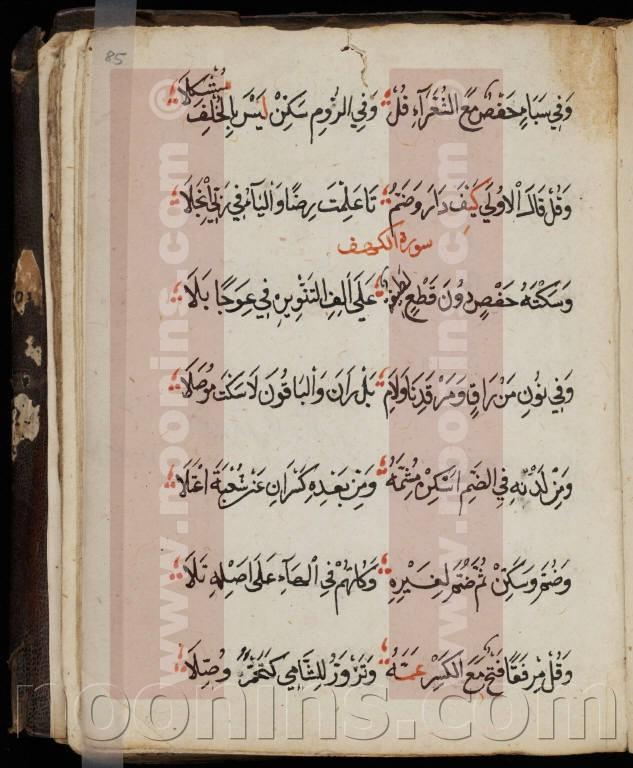 85
وَفِي سَبَإٍ حَفْصٌ مَعَ الشُّعَرَآءِ قُلْ وَفِي الرُّومِ سَكِّنْ لَيْسَ بِالْخُلْفِ مُشْكِلَا
وَقُلْ قَالَ الْاُولَى كَيْفَ دَارَ وَضَمُّ تَا عَلِمْتَ رِضًا وَالْيَآءُ فِي رَبِّيَ انْجَلَا
سورة الكهف
وَسَكْتَةُ حَفْصٍ دُونَ قَطْعٍ لَطِيفَةٌ عَلَى اَلِفِ التَّنْوِينِ فِي عِوَجًا بَلَا
وَفِي نُونِ مَنْ رَاقٍ وَمَرْقَدِنَا وَلَامِ بَلْ رَانَ وَالْبَاقُونَ لَا سَكْتَ مُوصَلَا
وَمِنْ لَدْنِهِ فِي الضَّمِّ اَسْكِنْ مُشِمَّهُ وَمِنْ بَعْدِهِ كَسْرَانِ عَنْ شُعْبَةَ اعْتَلَا
وَضُمَّ وَسَكِّنْ ثُمَّ ضُمَّ لِغَيْرِهِ وَكُلُّهُمْ فِي الْهَآءِ عَلَى اَصْلِهِ تَلَا
وَقُلْ مِرْفَقًا فَتْحٌ مَعَ الْكَسْرِ عَمَّهُ وَتَزْوَرُّ لِلشَّامِي كَتَحْمَرُّ وُصِّلَا
© www.noonins.com
© www.noonins.com
noonins.com